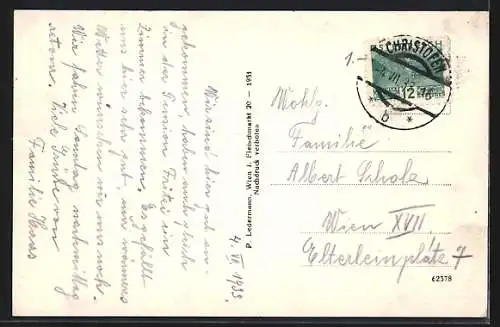 4. VI. 1933.
Wir sind hier gut an-
gekommen, haben auch gleich
in der Pension Fritzi ein
Zimmer bekommen. Es gefällt
uns hier sehr gut, nur wärmeres
Wetter wünschten wir uns noch.
Wir fahren Sonntag nachmittag
retour. Viele Grüße von
Familie Haas
P. Ledermann, Wien I, Fleischmarkt 20 - 1931
Nachdruck verboten
CHRISTOFEN
12
b
*
1.-
Wohlg.
Familie
Albert Scholz
Wien XVII
Elterleinplatz 7
62378